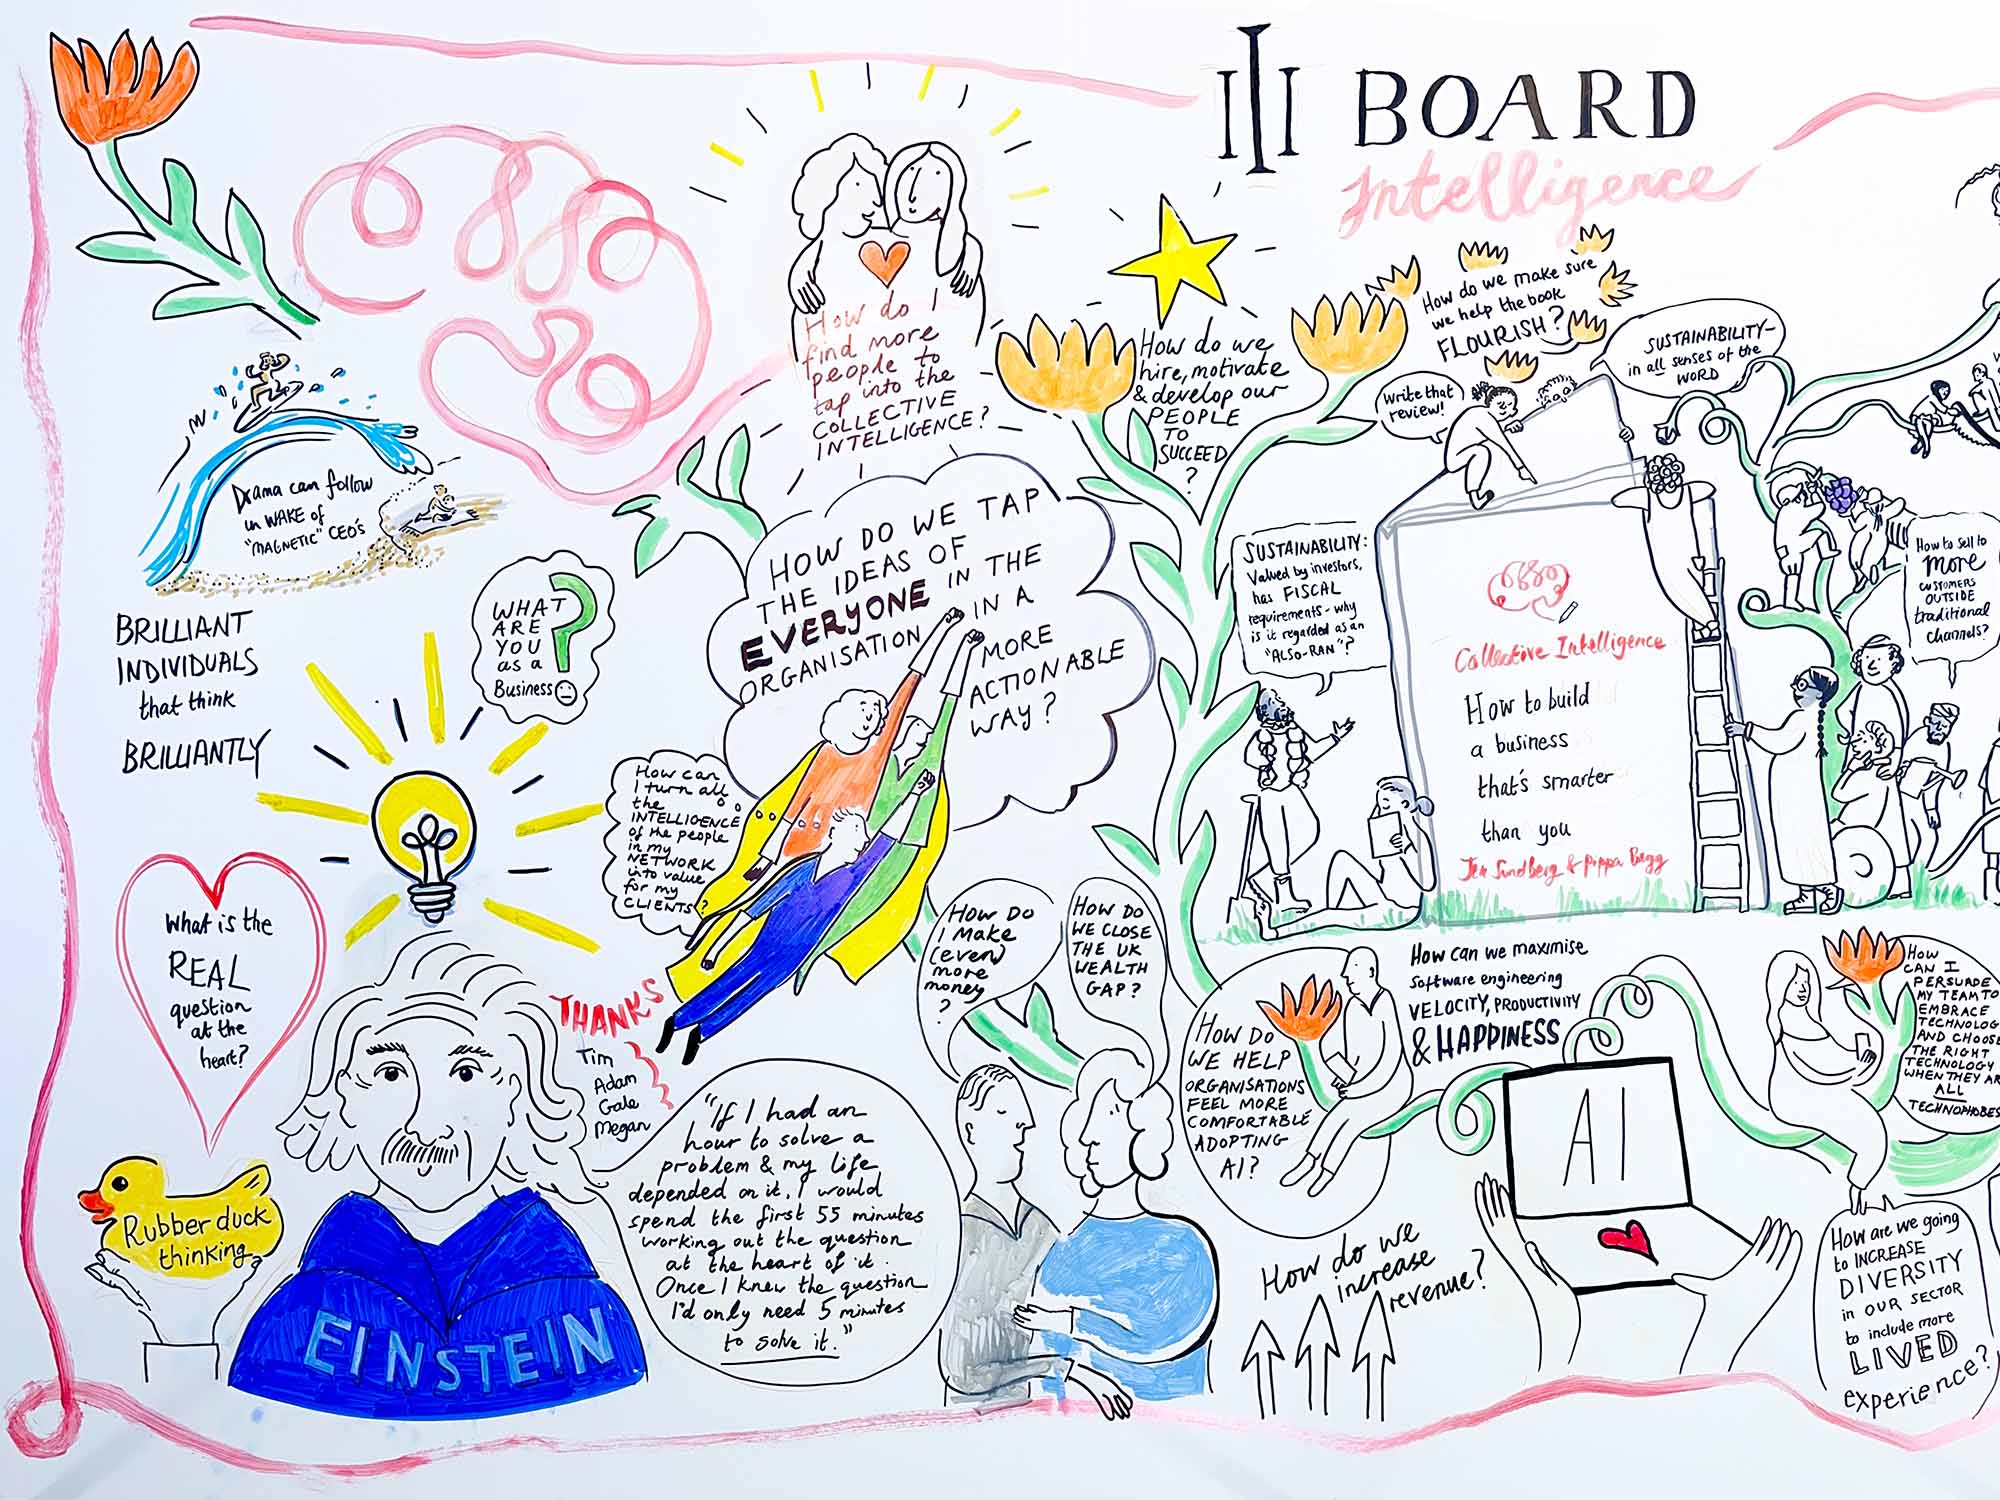 BOARD
Intelligence
How do I
find more
people to
tap into the
COLLECTIVE
INTELLIGENCE?
How do we
hire, motivate
& develop our
PEOPLE
TO
SUCCEED
?
How do we make sure
we help the book
FLOURISH?
Write that
review!
SUSTAINABILITY-
in all senses of the
WORD
Drama can follow
in WAKE of
"MAGNETIC" CEO'S
BRILLIANT
INDIVIDUALS
that think
BRILLIANTLY
WHAT
ARE
YOU
as a
Business
?
HOW DO WE TAP
THE IDEAS OF
EVERYONE IN THE
ORGANISATION IN A
MORE
ACTIONABLE
WAY?
How can
I turn all
the
INTELLIGENCE
of the people
in my
NETWORK
into value
for my
CLIENTS?
SUSTAINABILITY:
Valued by investors,
has FISCAL
requirements - why
is it regarded as an
"ALSO-RAN"?
Collective Intelligence
How to build
a business
that's smarter
than you
Jen Sundberg & Pippa Begg
How to sell to
more
CUSTOMERS
OUTSIDE
traditional
channels?
What is the
REAL
question
at the
heart?
Rubber duck
thinking
EINSTEIN
THANKS
Tim
Adam
Gale
Megan
"If I had an
hour to solve a
problem & my life
depended on it, I would
spend the first 55 minutes
working out the question
at the heart of it.
Once I knew the question
I'd only need 5 minutes
to solve it."
HOW DO
I MAKE
(even)
more
money
?
HOW DO
WE CLOSE
THE UK
WEALTH
GAP?
HOW DO
WE HELP
ORGANISATIONS
FEEL MORE
COMFORTABLE
ADOPTING
AI?
How can we maximise
Software engineering
VELOCITY, PRODUCTIVITY
& HAPPINESS
AI
How do we
increase
revenue?
HOW
CAN I
PERSUADE
MY TEAM TO
EMBRACE
TECHNOLOG
AND CHOOSE
THE RIGHT
TECHNOLOGY
WHEN THEY AR
ALL
TECHNOPHOBES
How are we going
to INCREASE
DIVERSITY
in OUR SECTOR
to include more
LIVED
experience?